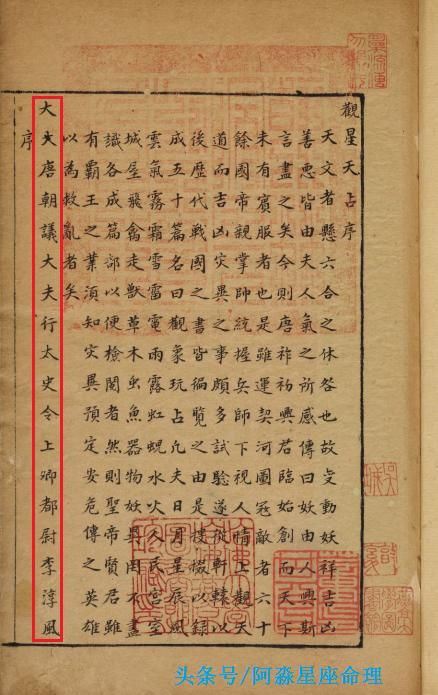 觀星天占序
天文者懸六合之休咎也故变動妖祥吉凶
善惡皆由夫人氣之所感傳曰妖由人興斯
言盡之矣今則唐祚初興君臨始創而天下
未有賓服者也是雖運契河圖冦敵者六十
餘國帝親掌師統握兵師下視人情上觀天
道而吉凶灾異之事頗多試驗遂從軒轅以
後歷代戰國之書皆徧覽之由是摟掇以録
成五十篇名曰觀象玩占凢夫日月星辰風
雲氣霧霜雪雷電雨露虹蜺水火人民宮室
城屋飛禽走獸草木虫魚器物妖異罔不盡
識各成篇部以便檢閱者然則聖帝賢君雖
有霸王之業須知灾異預定安危傳之英雄
以為救亂者矣
大夫唐朝議大夫行太史令上卿都尉李淳風
序
头条号/阿淼星座命理